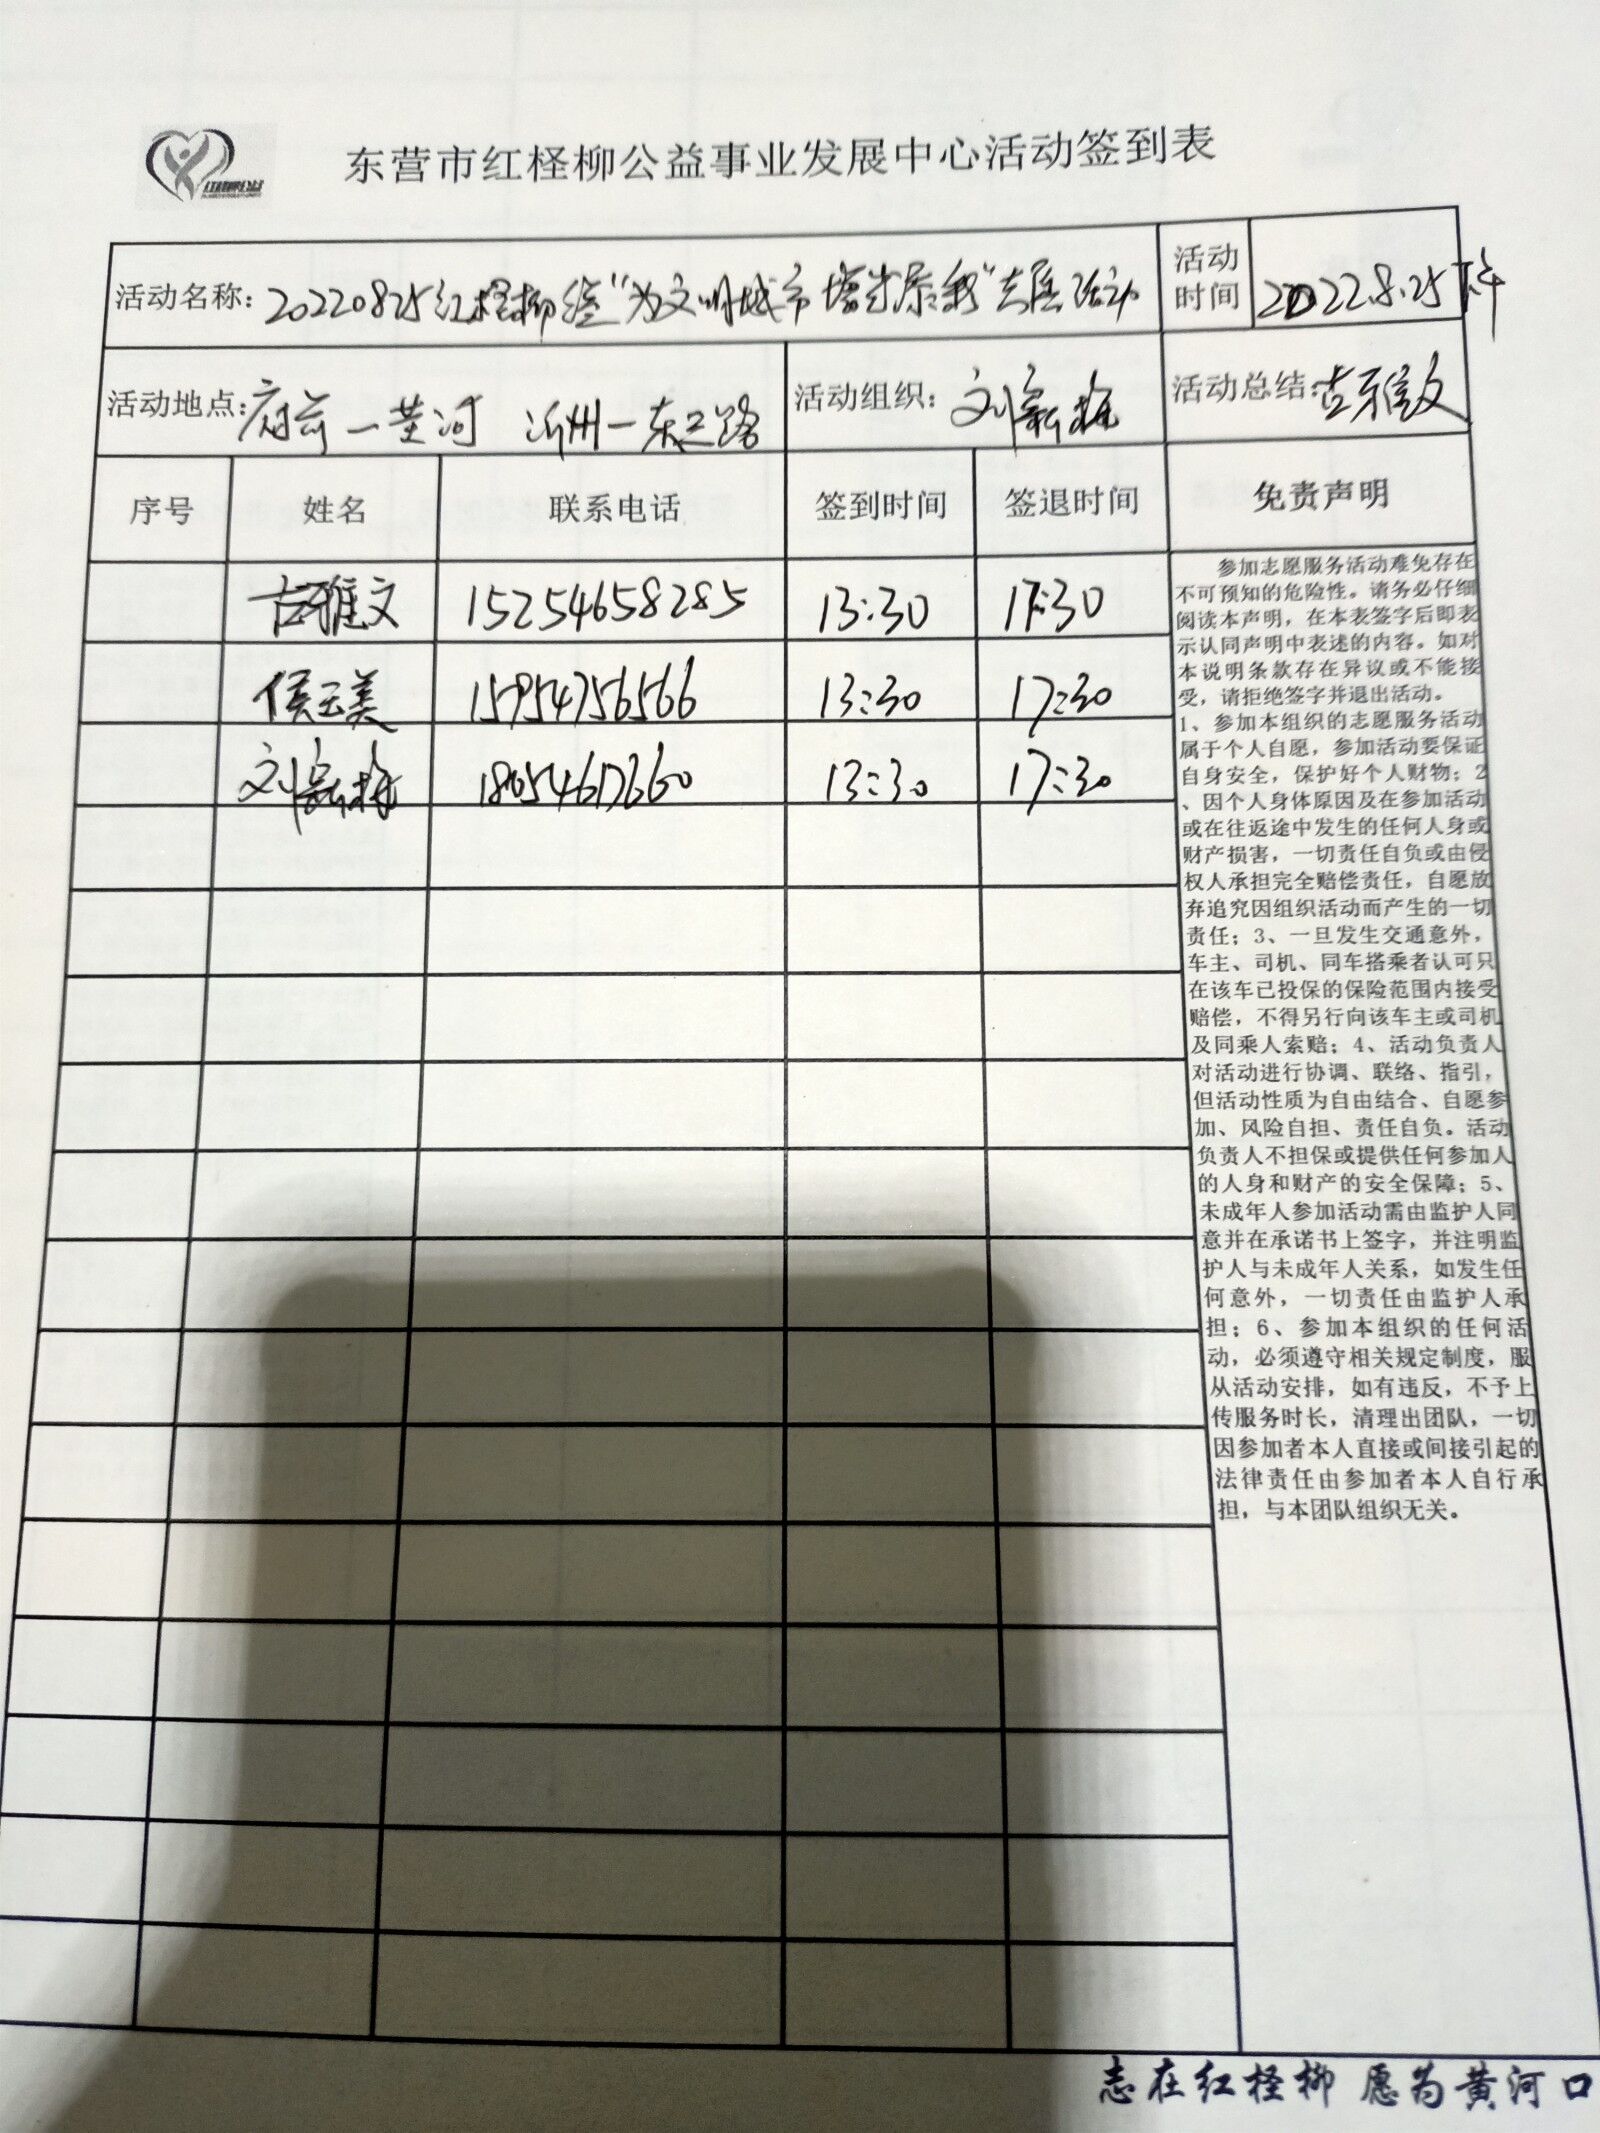 东营市红柽柳公益事业发展中心活动签到表
活动名称: 20220825红柽柳 "为文明城市增 志愿活动
活动时间 2022.8.25下午
活动地点: 府前一黄河 沂州一东三路
活动组织: 刘新梅
活动总结: 古雅文
序号 姓名 联系电话 签到时间 签退时间 免责声明
古雅文 15254658285 13:30 17:30
侯玉美 15954756566 13:30 17:30
刘新梅 13:30 17:30
参加志愿服务活动难免存在
不可预知的危险性。请务必仔细
阅读本声明，在本表签字后即表
示认同声明中表述的内容。如对
本说明条款存在异议或不能接
受，请拒绝签字并退出活动。
1、参加本组织的志愿服务活动
属于个人自愿，参加活动要保证
自身安全，保护好个人财物；2
、因个人身体原因及在参加活动
或在往返途中发生的任何人身或
财产损害，一切责任自负或由侵
权人承担完全赔偿责任，自愿放
弃追究因组织活动而产生的一切
责任；3、一旦发生交通意外，
车主、司机、同车搭乘者认可只
在该车已投保的保险范围内接受
赔偿，不得另行向该车主或司机
及同乘人索赔；4、活动负责人
对活动进行协调、联络、指引，
但活动性质为自由结合、自愿参
加、风险自担、责任自负。活动
负责人不担保或提供任何参加人
的人身和财产的安全保障；5、
未成年人参加活动需由监护人同
意并在承诺书上签字，并注明监
护人与未成年人关系，如发生任
何意外，一切责任由监护人承
担；6、参加本组织的任何活
动，必须遵守相关规定制度，服
从活动安排，如有违反，不予上
传服务时长，清理出团队，一切
因参加者本人直接或间接引起的
法律责任由参加者本人自行承
担，与本团队组织无关。
志在红柽柳 愿为黄河口